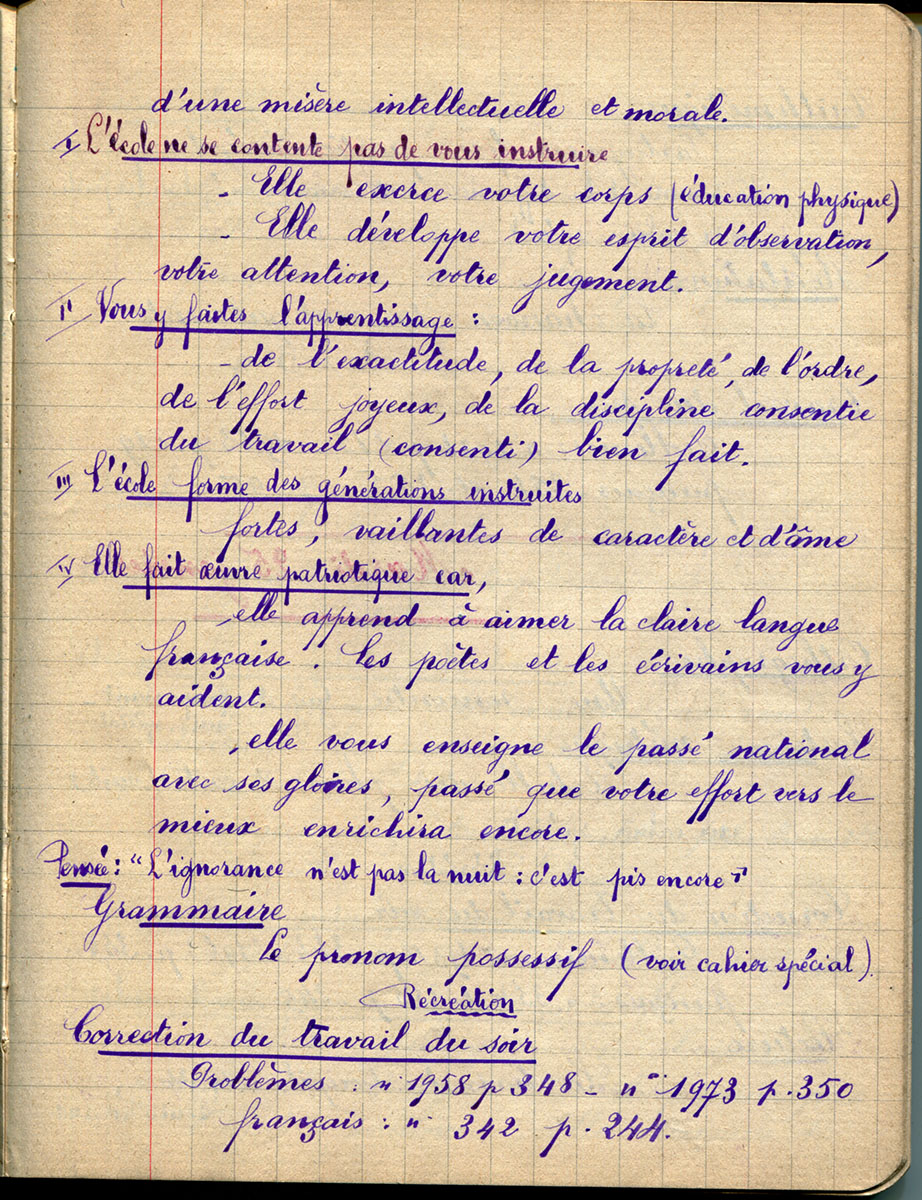 d'une misère intellectuelle et morale.
I L'école ne se contente pas de vous instruire
- Elle exerce votre corps (éducation physique)
- Elle développe votre esprit d'observation,
votre attention, votre jugement.
II Vous y faites l'apprentissage :
- de l'exactitude, de la propreté, de l'ordre,
de l'effort joyeux, de la discipline consentie
du travail (consenti) bien fait.
III L'école forme des générations instruites
fortes, vaillantes de caractère et d'âme
IV Elle fait œuvre patriotique car,
- elle apprend à aimer la claire langue
française. Les poètes et les écrivains vous y
aident.
- elle vous enseigne le passé national
avec ses gloires, passé que votre effort vers le
mieux enrichira encore.
Pensée : "L'ignorance n'est pas la nuit : c'est pis encore"
Grammaire
Le pronom possessif (voir cahier spécial).
Récréation
Correction du travail du soir
Problèmes : n° 1958 p 348 - n° 1973 p. 350
français : n° 342 p. 244.